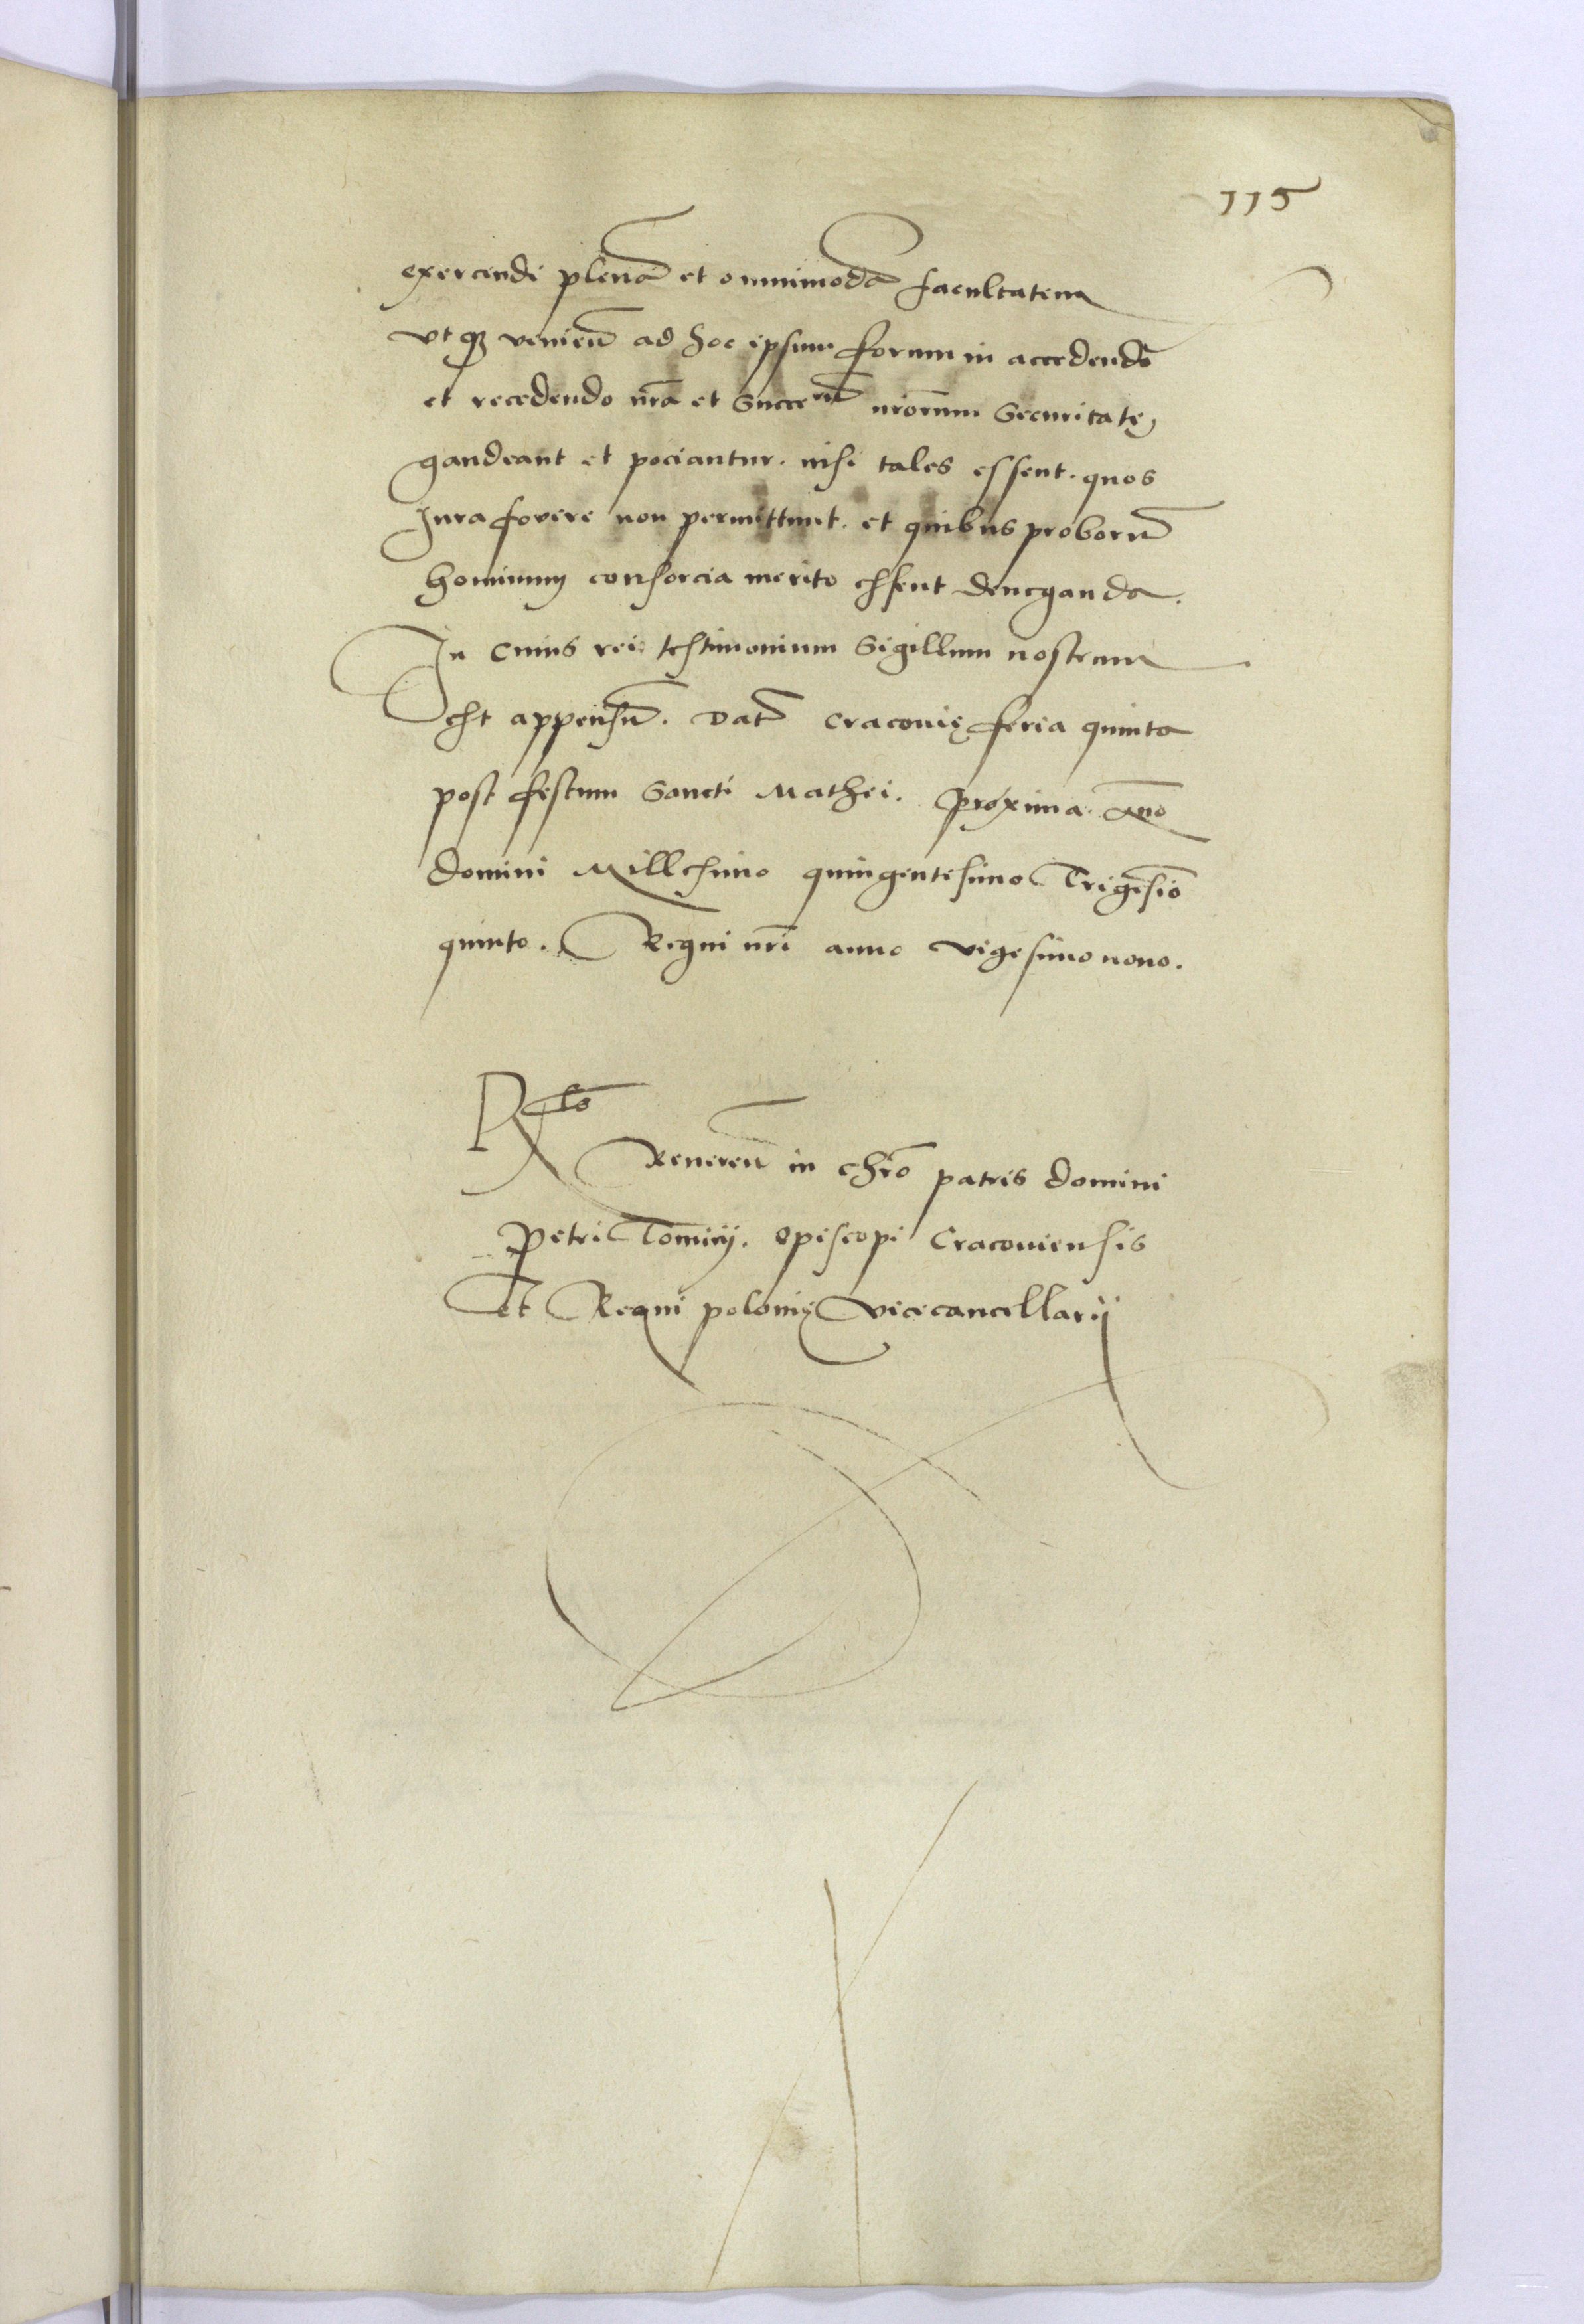 115
exercendi plenā et omnimodā facultatem
vt qꝫ venieñ ad hoc ipsum forum in accedendo
et recedendo nr̄a et Succeru̅ nr̄orum Securitate
gaudeant et pociantur. nisi tales essent. quos
Jura fovere non permittunt. et quibus proborū
hominum consorcia merito essent deneganda.
In cuius rei testimonium Sigillum nostrum
est appensū. Dat̄ Cracovię feria quinta
post festum Sancti Mathei. proxima. Anō
domini Millesimo quingentesimo Trigesiō
quinto. Regni nr̄i anno vigesimo nono.
Rlō
Reuereñ in chr̄o patris domini
Petri Tomicij. Episcopi Cracoviensis
Et Regni polonię vicecancellarij